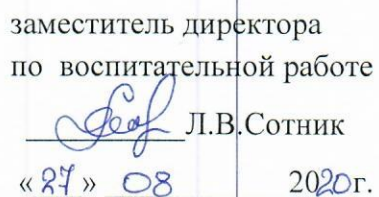 заместитель директора
по воспитательной работе
Л.В.Сотник
« 27 » 08 2020г.